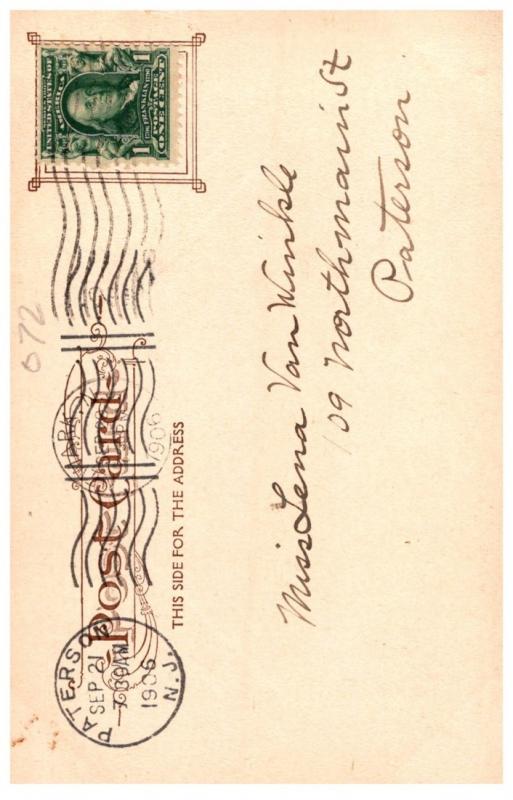 UNITED STATES OF AMERICA
FRANKLIN
POSTAGE
ONE CENT
1 1
Post Card
THIS SIDE FOR THE ADDRESS
PATERSON
SEP 21
7 30 AM
1906
N.J.
1906
Miss Lena Van Winkle
109 North main St
Paterson
072